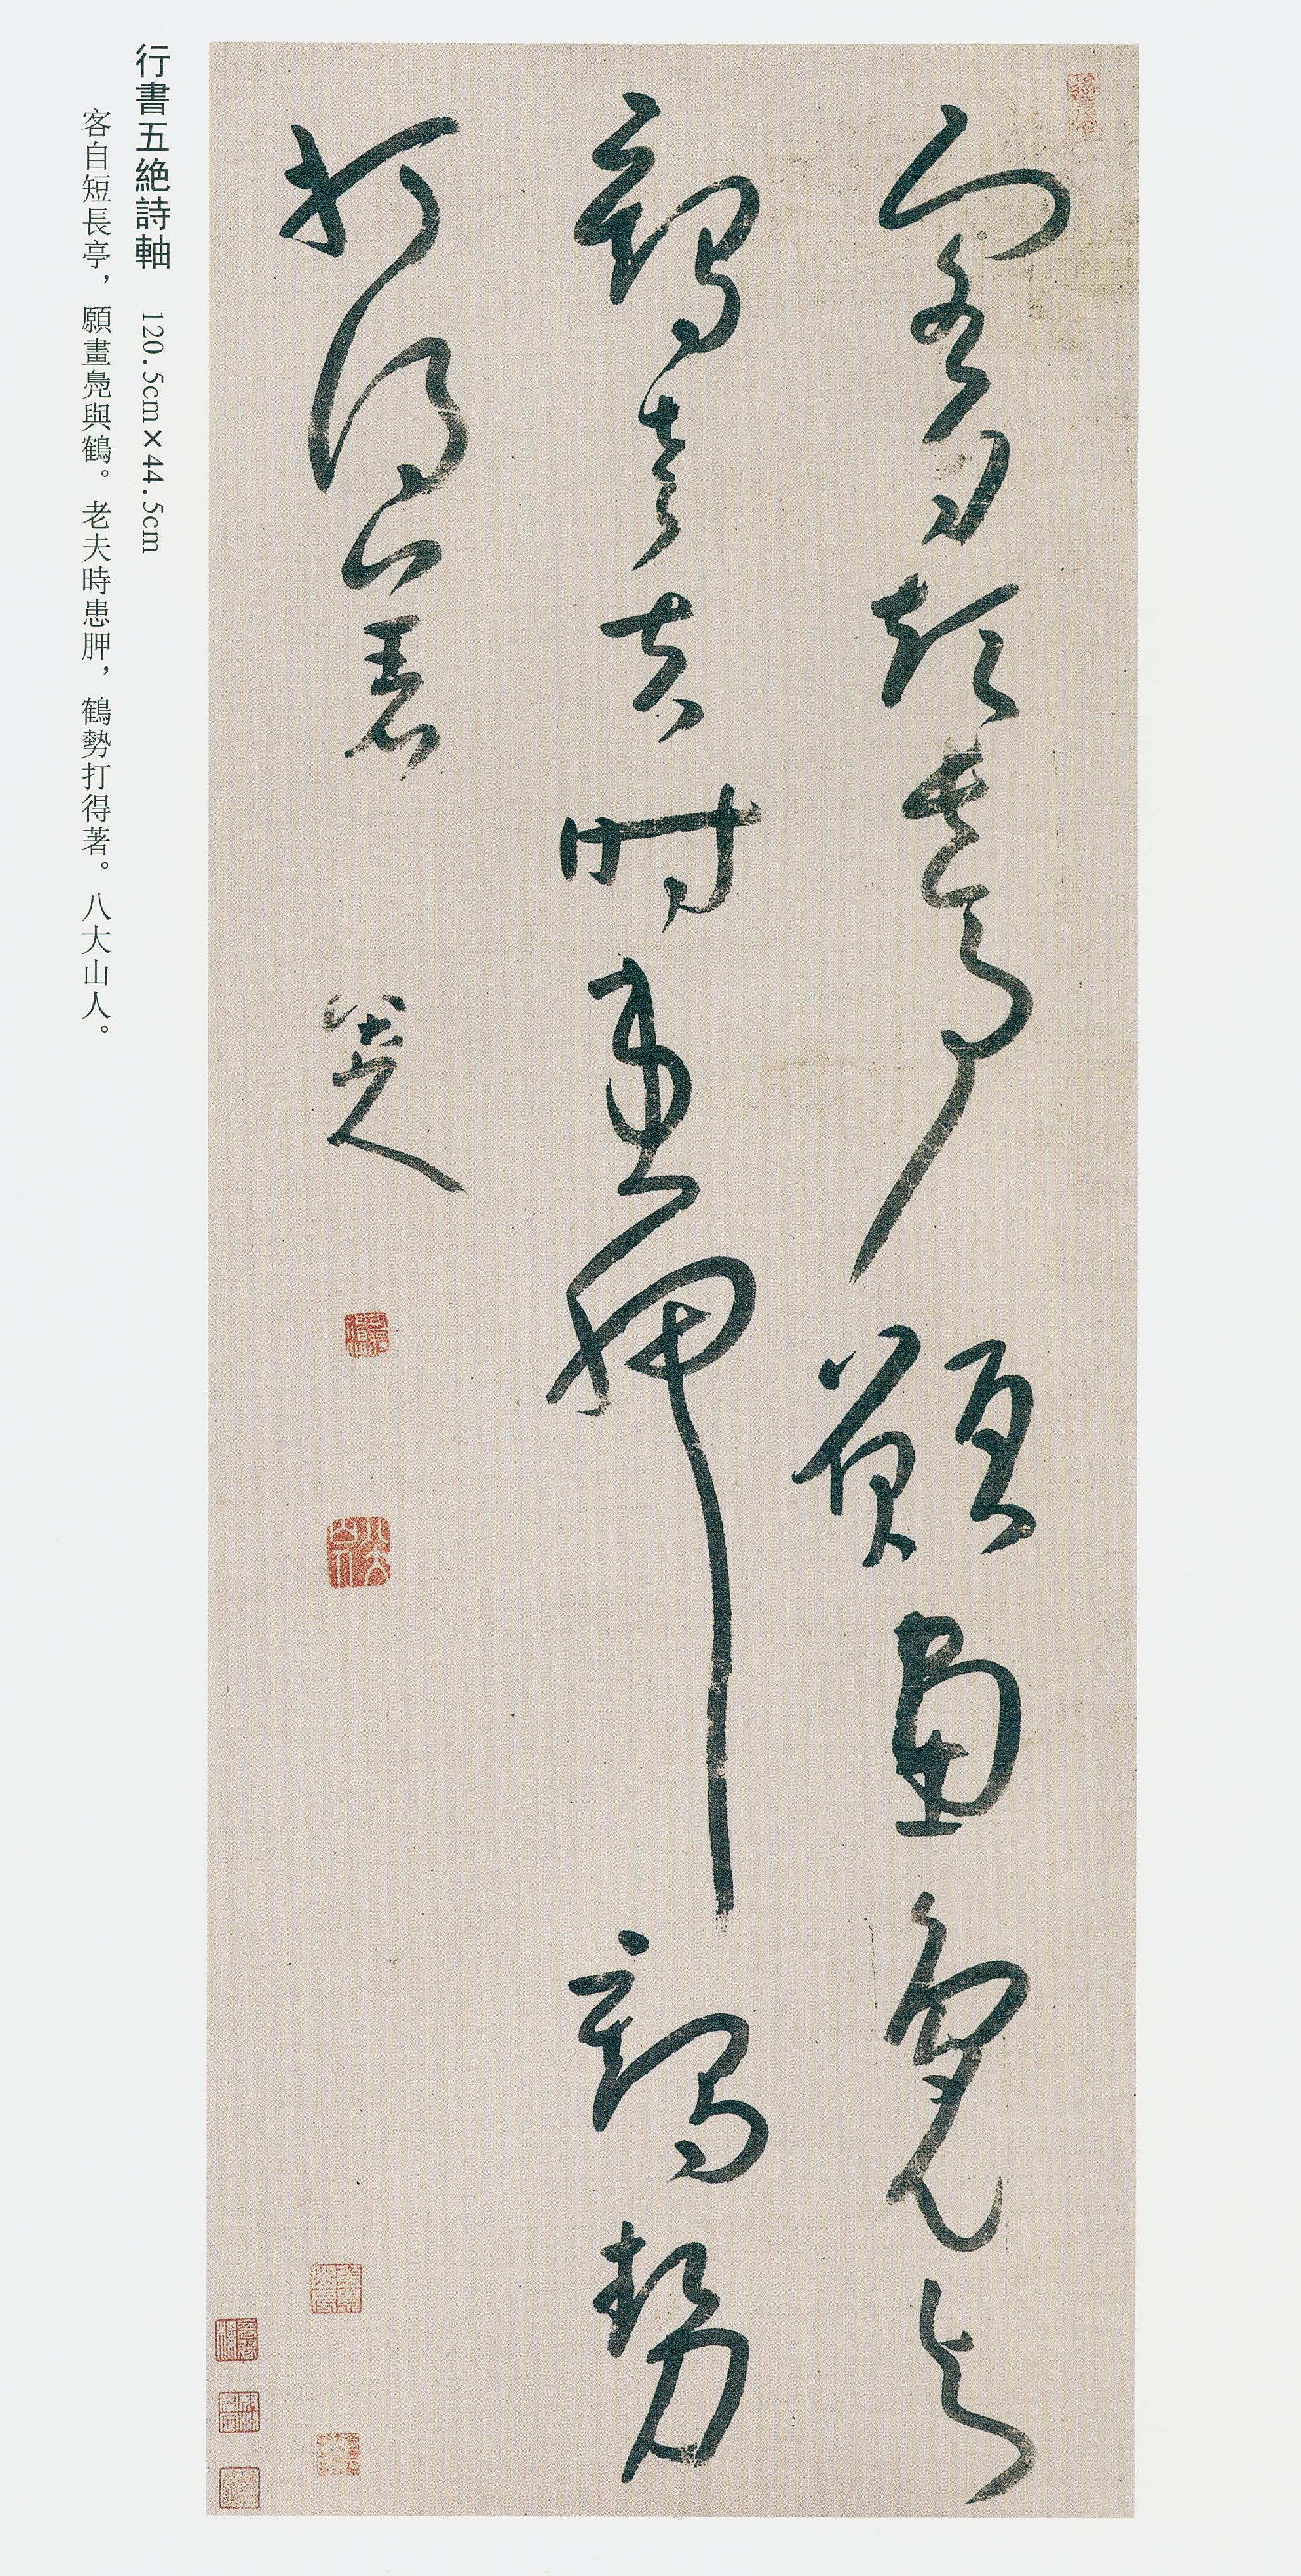 客自短長亭願畫鳧與
鶴老夫時患胛鶴勢
打得著
八大山人
行書五絶詩軸 120.5cm×44.5cm
客自短長亭，願畫鳧與鶴。老夫時患胛，鶴勢打得著。八大山人。